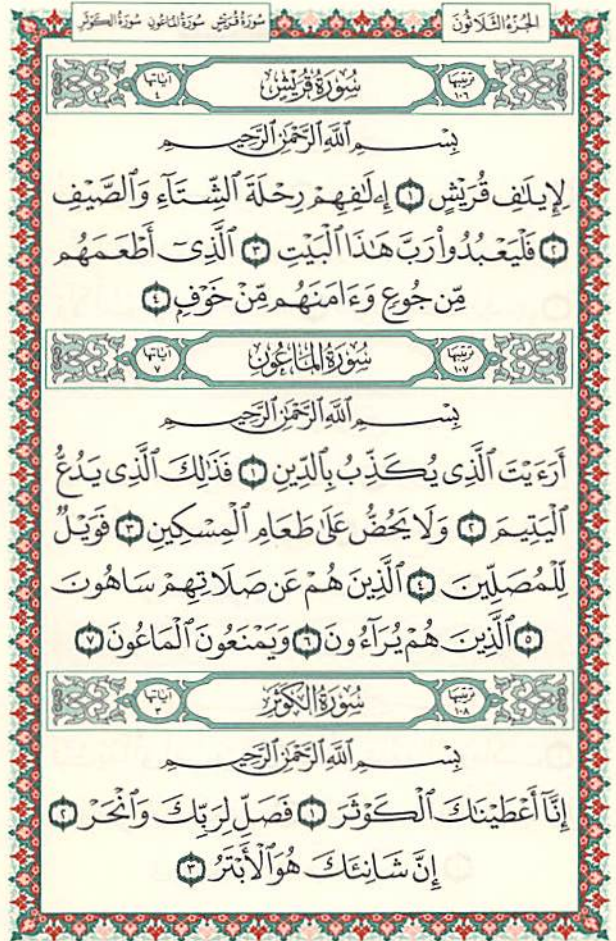 الجُزْءُ الثَّلَاثُونَ سُورَةُ قُرَيْشٍ سُورَةُ المَاعُونِ سُورَةُ الكَوْثَرِ
تَرْتِيبُهَا ١٠٦ سُورَةُ قُرَيْشٍ آيَاتُهَا ٤
بِسْمِ ٱللَّهِ ٱلرَّحْمَٰنِ ٱلرَّحِيمِ
لِإِيلَٰفِ قُرَيْشٍ ١ إِۦلَٰفِهِمْ رِحْلَةَ ٱلشِّتَآءِ وَٱلصَّيْفِ
٢ فَلْيَعْبُدُوا۟ رَبَّ هَٰذَا ٱلْبَيْتِ ٣ ٱلَّذِىٓ أَطْعَمَهُم
مِّن جُوعٍ وَءَامَنَهُم مِّنْ خَوْفٍ ٤
تَرْتِيبُهَا ١٠٧ سُورَةُ المَاعُونِ آيَاتُهَا ٧
بِسْمِ ٱللَّهِ ٱلرَّحْمَٰنِ ٱلرَّحِيمِ
أَرَءَيْتَ ٱلَّذِى يُكَذِّبُ بِٱلدِّينِ ١ فَذَٰلِكَ ٱلَّذِى يَدُعُّ
ٱلْيَتِيمَ ٢ وَلَا يَحُضُّ عَلَىٰ طَعَامِ ٱلْمِسْكِينِ ٣ فَوَيْلٌ
لِّلْمُصَلِّينَ ٤ ٱلَّذِينَ هُمْ عَن صَلَاتِهِمْ سَاهُونَ
٥ ٱلَّذِينَ هُمْ يُرَآءُونَ ٦ وَيَمْنَعُونَ ٱلْمَاعُونَ ٧
تَرْتِيبُهَا ١٠٨ سُورَةُ الكَوْثَرِ آيَاتُهَا ٣
بِسْمِ ٱللَّهِ ٱلرَّحْمَٰنِ ٱلرَّحِيمِ
إِنَّآ أَعْطَيْنَٰكَ ٱلْكَوْثَرَ ١ فَصَلِّ لِرَبِّكَ وَٱنْحَرْ ٢
إِنَّ شَانِئَكَ هُوَ ٱلْأَبْتَرُ ٣